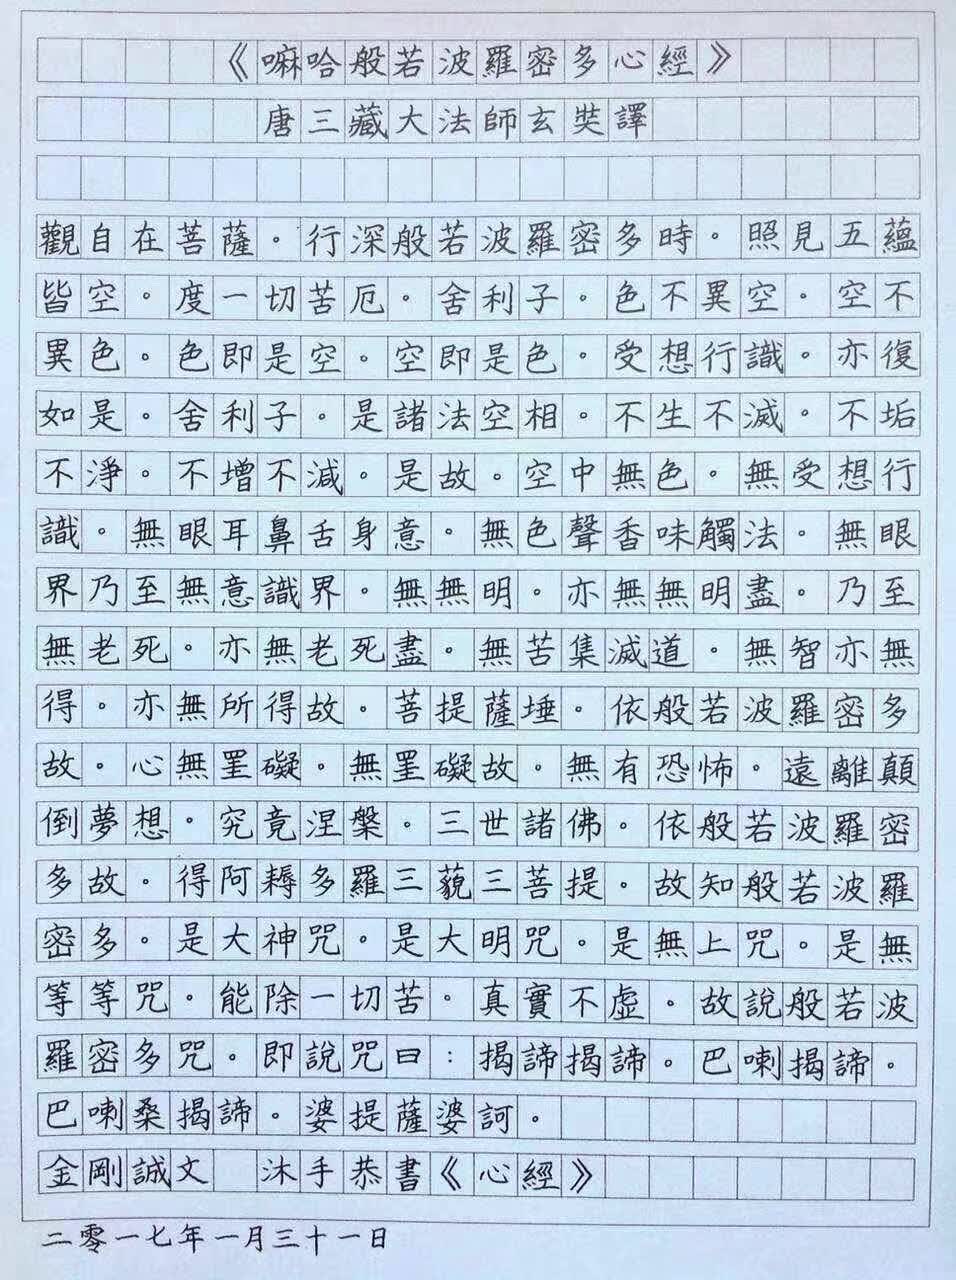 《嘛哈般若波羅密多心經》
唐三藏大法師玄奘譯
觀自在菩薩。行深般若波羅密多時。照見五蘊
皆空。度一切苦厄。舍利子。色不異空。空不
異色。色即是空。空即是色。受想行識。亦復
如是。舍利子。是諸法空相。不生不滅。不垢
不淨。不增不減。是故。空中無色。無受想行
識。無眼耳鼻舌身意。無色聲香味觸法。無眼
界乃至無意識界。無無明。亦無無明盡。乃至
無老死。亦無老死盡。無苦集滅道。無智亦無
得。亦無所得故。菩提薩埵。依般若波羅密多
故。心無罣礙。無罣礙故。無有恐怖。遠離顛
倒夢想。究竟涅槃。三世諸佛。依般若波羅密
多故。得阿耨多羅三藐三菩提。故知般若波羅
密多。是大神咒。是大明咒。是無上咒。是無
等等咒。能除一切苦。真實不虛。故說般若波
羅密多咒。即說咒曰：揭諦揭諦。巴喇揭諦。
巴喇桑揭諦。婆提薩婆訶。
金剛誠文 沐手恭書《心經》
二零一七年一月三十一日